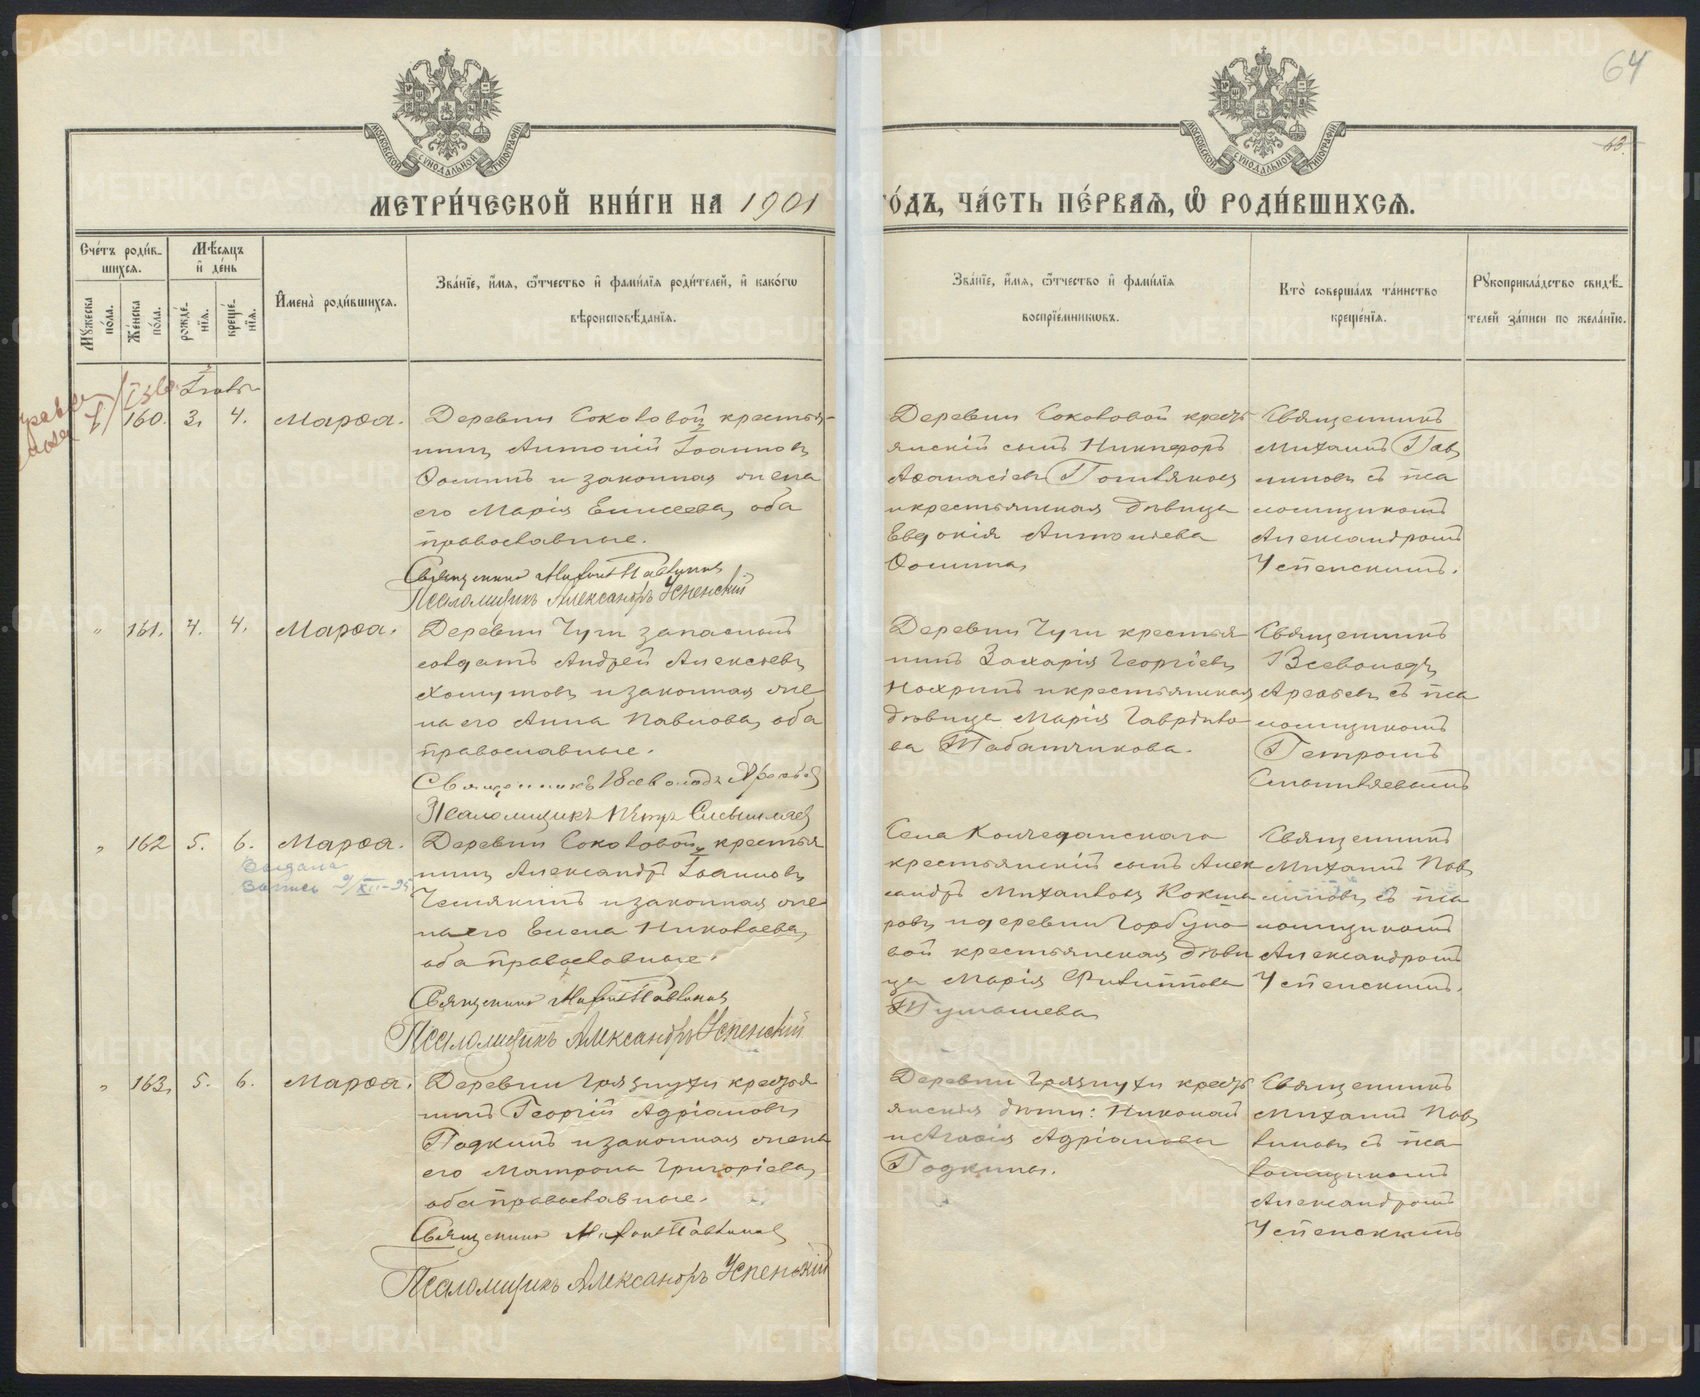 64
63.
МОСКОВСКОЙ СѴНОДАЛЬНОЙ ТИПОГРАФІИ
МОСКОВСКОЙ СѴНОДАЛЬНОЙ ТИПОГРАФІИ
МЕТРИ́ЧЕСКОЙ КНИ́ГИ НА 1901
ГО́ДЪ, ЧА́СТЬ ПЕ́РВАѦ, Ѡ҆ РОДИ́ВШИХСѦ.
Сче́тъ роди́в-
шихся.
Мѣ́сяцъ
и҆ де́нь
И҆мена̀ роди́вшихся.
Зва́нїе, и҆́мя, ѻ҆́тчество и҆ фами́лїя роди́телей, и҆ како́гѡ
вѣроисповѣ́данїя.
Мꙋ́жеска
по́ла.
Же́нска
по́ла.
рожде́-
нїя.
креще́-
нїя.
Зва́нїе, и҆́мя, ѻ҆́тчество и҆ фами́лїя
воспрїе́мникѡвъ.
Кто̀ соверша́лъ та́инство
креще́нїя.
Рꙋкоприкла́дство свидѣ́-
телей за́писи по жела́нїю.
Іюль
160. 3. 4. Марѳа.
Деревни Соколовой крестья-
нинъ Антоній Іоанновъ
Ѳоминъ и законная жена
его Марія Елисеева, оба
православные.
Священникъ Михаилъ Павлиновъ
Псаломщикъ Александръ Успенскій
Деревни Соколовой кресть
янскій сынъ Никифоръ
Аѳанасіевъ Поливяковъ
и крестьянская дѣвица
Евдокія Антоніева
Ѳомина
Священникъ
Михаилъ Пав
линовъ съ пса
ломщикомъ
Александромъ
Успенскимъ.
" 161. 4. 4. Марѳа.
Деревни Чуги запасный
солдатъ Андрей Алексѣевъ
Хомутовъ и законная же
на его Анна Павлова, оба
православные.
Священникъ Всеволодъ Арефьев
Псаломщикъ Петръ Смышляев
Деревни Чуги крестья
нинъ Захарія Георгіевъ
Нохринъ и крестьянская
дѣвица Марія Гаврило-
ва Табатчикова.
Священникъ
Всеволодъ
Арефьевъ съ пса
ломщикомъ
Петромъ
Смышляевымъ
" 162 5. 6. Марѳа.
Выдана
Выпись 9/XII-95
Деревни Соколовой крестья
нинъ Александръ Іоанновъ
Чемякинъ и законная же
на его Елена Николаева,
оба православные.
Священникъ Михаилъ Павлинов
Псаломщикъ Александръ Успенскій
Села Колчеданскаго
крестьянскій сынъ Алек
сандръ Михаиловъ Кокша
ровъ и деревни Горбуно
вой крестьянская дѣви
ца Марія Филиппова
Тумашева
Священникъ
Михаилъ Пав
линовъ съ пса
ломщикомъ
Александромъ
Успенскимъ.
" 163. 5. 6. Марѳа.
Деревни Грязнухи крестья
нинъ Георгій Адріановъ
Подкинъ и законная жена
его Матрона Григоріева,
оба православные.
Священникъ Михаилъ Павлинов
Псаломщикъ Александръ Успенскій
Деревни Грязнухи кресть
янскія дѣти: Николай
и Агафія Адріановы
Подкины.
Священникъ
Михаилъ Пав
линовъ съ пса
ломщикомъ
Александромъ
Успенскимъ
METRIKI.GASO-URAL.RU